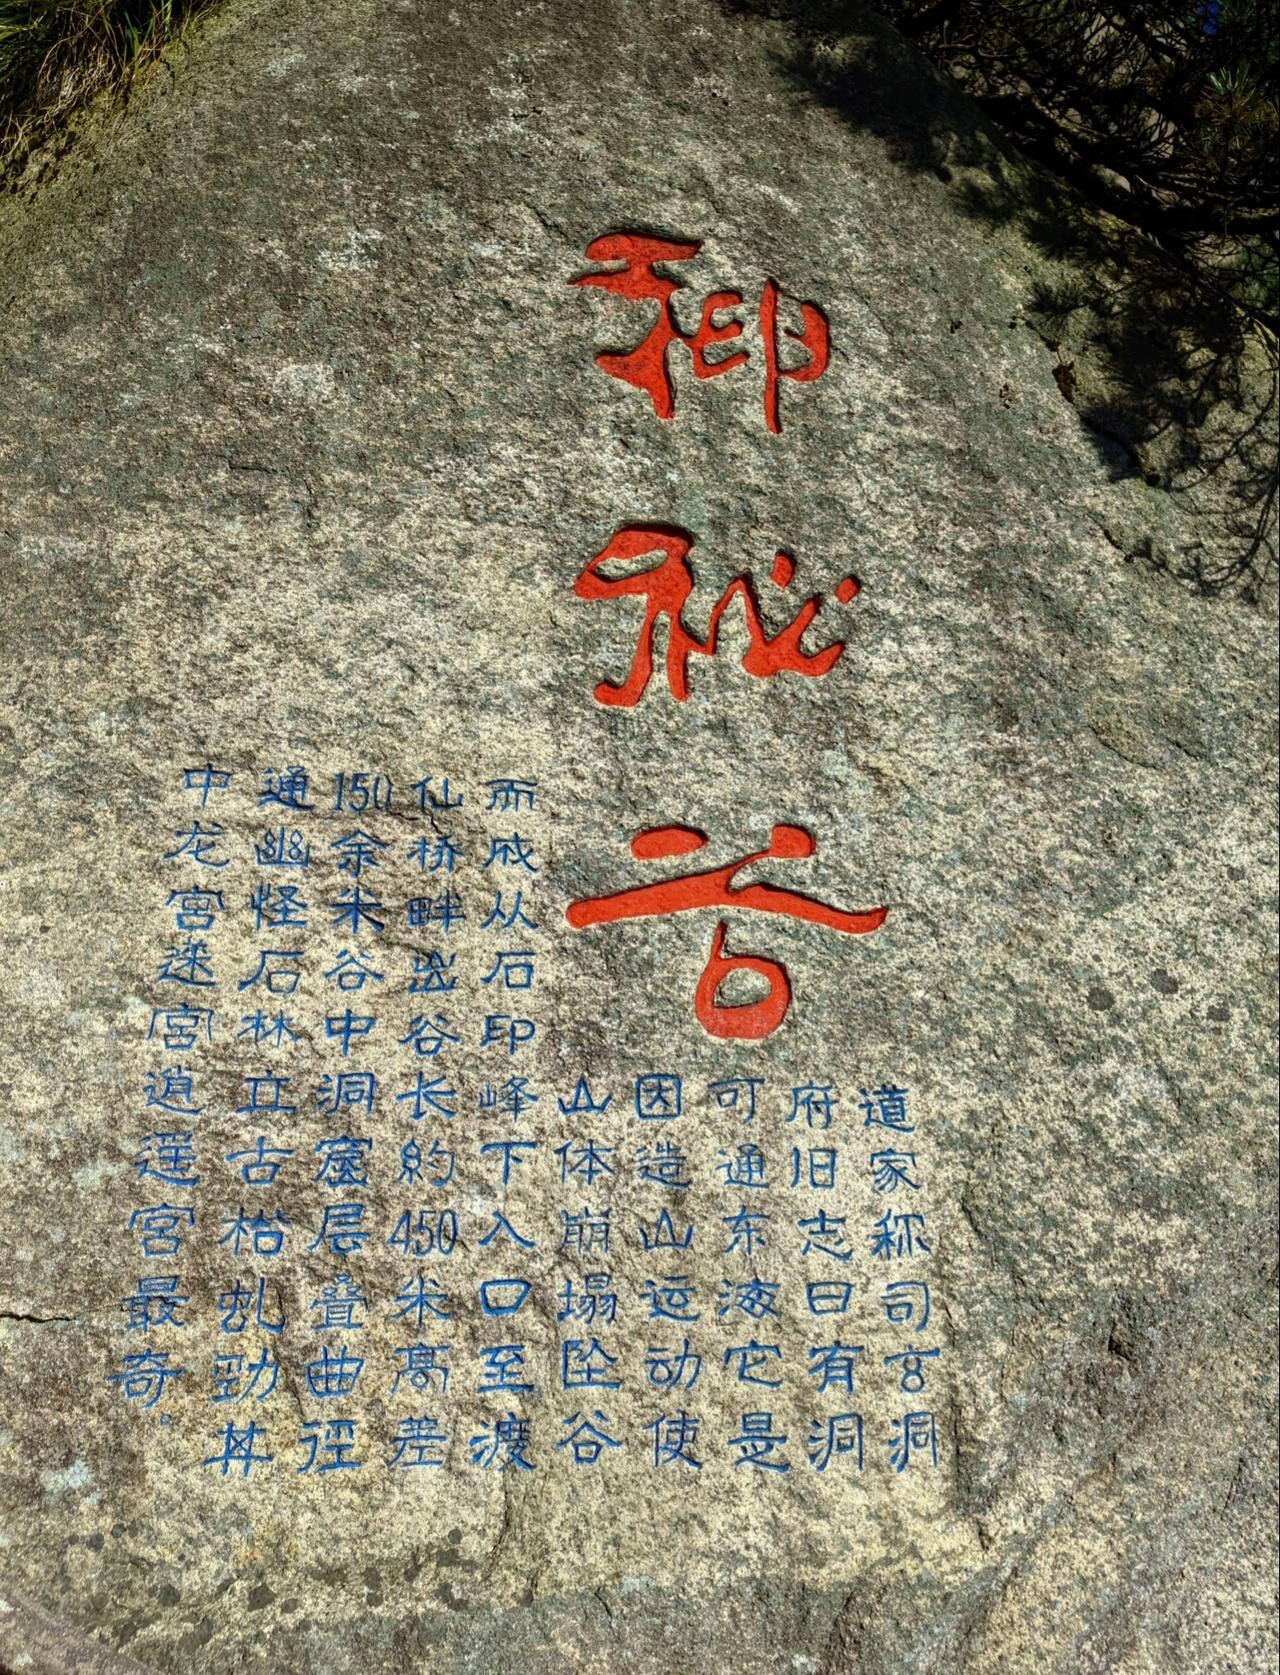 神秘谷
道家称司玄洞
府旧志曰有洞
可通东海它是
因造山运动使
山体崩塌坠谷
而成从石印峰下入口至渡
仙桥畔出谷长約450米高差
150余米谷中洞窟层叠曲径
通幽怪石林立古松虬劲其
中龙宫迷宫逍遥宫最奇。